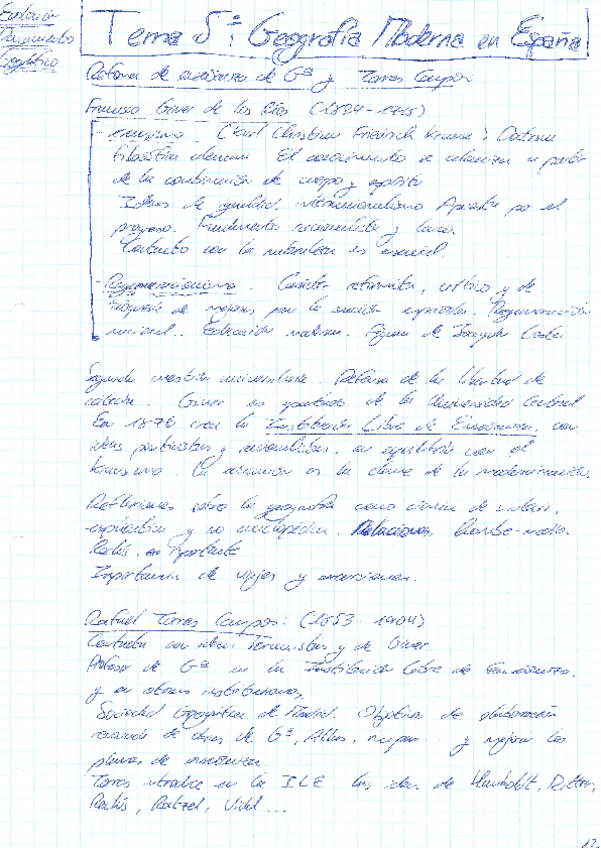 Evolución
Pensamiento
Geográfico
Tema 5º: Geografía Moderna en España
Reforma de enseñanza de Gª y Torres Campos
Francisco Giner de los Ríos (1839-1915)
Krausismo (Karl Christian Friedrich Krause): Doctrina
filosófica alemana. El conocimiento se relaciona a partir
de la combinación de cuerpo y espíritu
Ideas de igualdad, internacionalismo. Apuesta por el
progreso. Fundamentos racionalista y laico.
Contacto con la naturaleza es esencial.
Regeneracionismo. Carácter reformista, crítico y de
de mejoras, por la situación española. Regeneración
nacional. Educación moderna. Figura de Joaquín Costa
Segunda cuestión universitaria. Defensa de la libertad de
cátedra. Giner es apartado de la Universidad Central
En 1876 crea la Institución Libre de Enseñanza, con
ideas positivistas y racionalistas, en equilibrio con el
krausismo. La educación es la clave de la modernización.
Reflexiones sobre la geografía como ciencia de síntesis,
explicativa y no enciclopédica. Relaciones hombre-medio.
Reclús, importante
Importancia de viajes y excursiones.
Rafael Torres Campos: (1853-1904)
Contacta con ideas krausistas y de Giner
Profesor de Gª en la Institución Libre de Enseñanza
y en otras instituciones,
Sociedad Geográfica de Madrid. Objetivos de elaboración
de obras de Gª, Atlas, mapas... y mejorar los
planes de enseñanza
Torres introduce en la ILE las ideas de Humboldt, Ritter,
Reclús, Ratzel, Vidal...